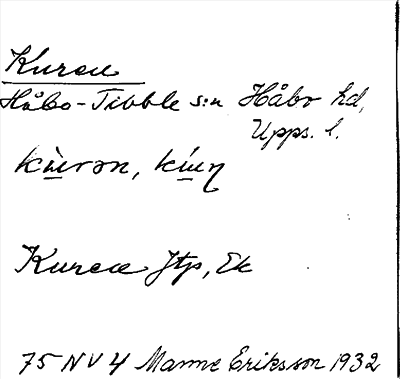 Kuren
Håbo-Tibble s:n Håbo hd,
Upps. l.
kùrən, kúṇ
Kuren Jtp, Ek
75 NV 4 Manne Eriksson 1932